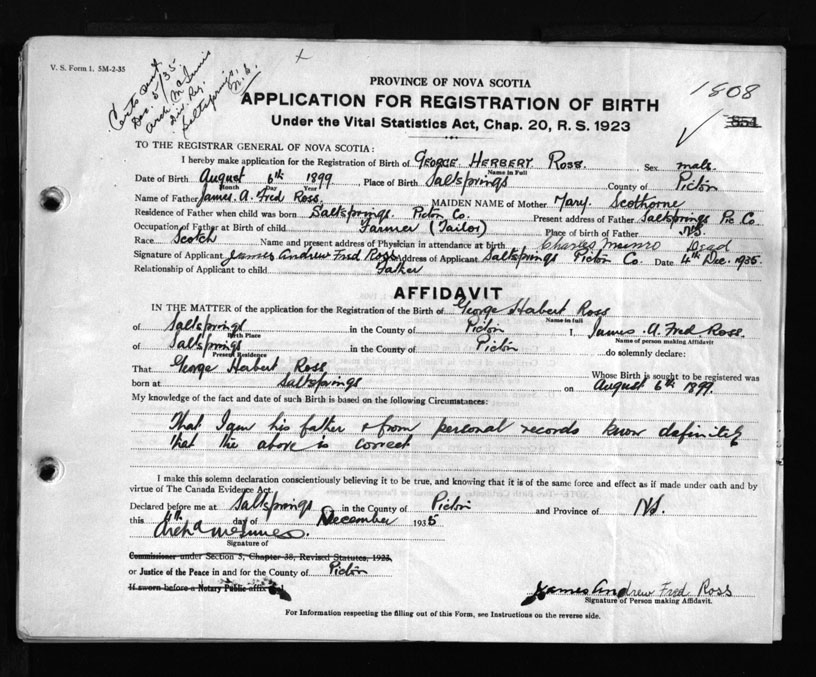 V. S. Form 1. 5M-2-35
Certs sent
Dec. 5/35
Arch McInnis
Div. Reg.
Saltsprings,
N.S.
PROVINCE OF NOVA SCOTIA
APPLICATION FOR REGISTRATION OF BIRTH
Under the Vital Statistics Act, Chap. 20, R. S. 1923
1808
854
TO THE REGISTRAR GENERAL OF NOVA SCOTIA:
I hereby make application for the Registration of Birth of GEORGE HERBERT ROSS. Sex male.
Name in Full
Date of Birth August 6th 1899 , Place of Birth Saltsprings County of Pictou
Month Day Year
Name of Father James. A. Fred Ross. MAIDEN NAME of Mother Mary. Scothorne
Residence of Father when child was born Saltsprings. Pictou Co. Present address of Father Saltsprings Pic Co.
Occupation of Father at Birth of child Farmer (Tailor) Place of birth of Father N.S.
Race Scotch Name and present address of Physician in attendance at birth Charles Munro Dead
Signature of Applicant James Andrew Fred Ross Address of Applicant Saltsprings Pictou Co. Date 4th Dec. 1935.
Relationship of Applicant to child Father
AFFIDAVIT
IN THE MATTER of the application for the Registration of the Birth of George Herbert Ross
Name in full
of Saltsprings in the County of Pictou I, James. A. Fred. Ross.
Birth Place Name of person making Affidavit
of Saltsprings in the County of Pictou do solemnly declare:
Present Residence
That George Herbert Ross Whose Birth is sought to be registered was
born at Saltsprings on August 6th 1899.
My knowledge of the fact and date of such Birth is based on the following Circumstances:
That I am his father & from personal records know definitely
that the above is correct
I make this solemn declaration conscientiously believing it to be true, and knowing that it is of the same force and effect as if made under oath and by
virtue of The Canada Evidence Act.
Declared before me at Saltsprings in the County of Pictou and Province of N.S.
this 4th day of December 1935
Arch McInnes.
Signature of
Commissioner under Section 5, Chapter 38, Revised Statutes, 1923,
or Justice of the Peace in and for the County of Pictou
If sworn before a Notary Public affix
James Andrew Fred Ross
Signature of Person making Affidavit.
For Information respecting the filling out of this Form, see Instructions on the reverse side.